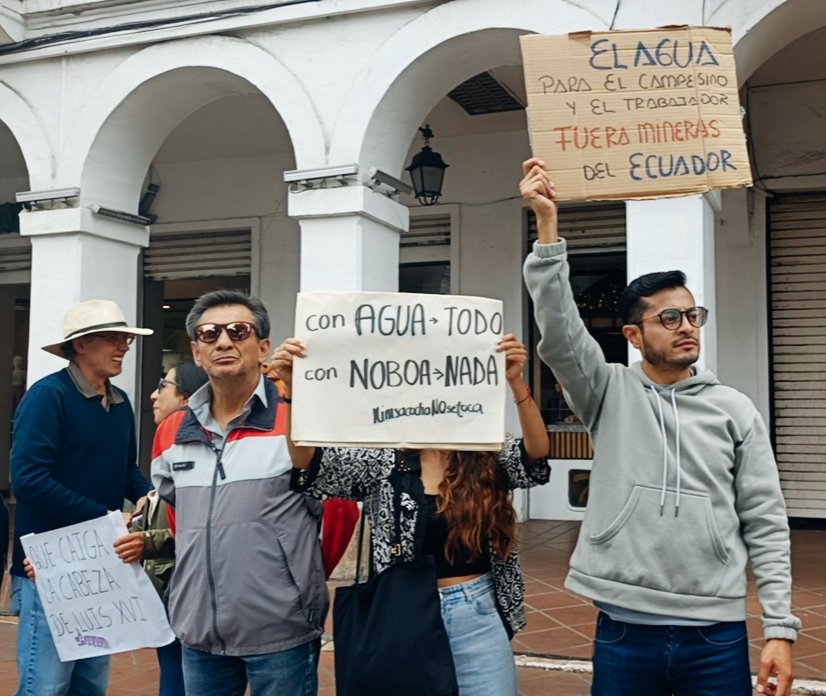 EL AGUA
PARA EL CAMPESINO
Y EL TRABAJADOR
FUERA MINERAS
DEL ECUADOR
con AGUA→TODO
con NOBOA→NADA
#KimsacochaNOsetoca
QUE CAIGA
LA CABEZA
DE LUIS XVI